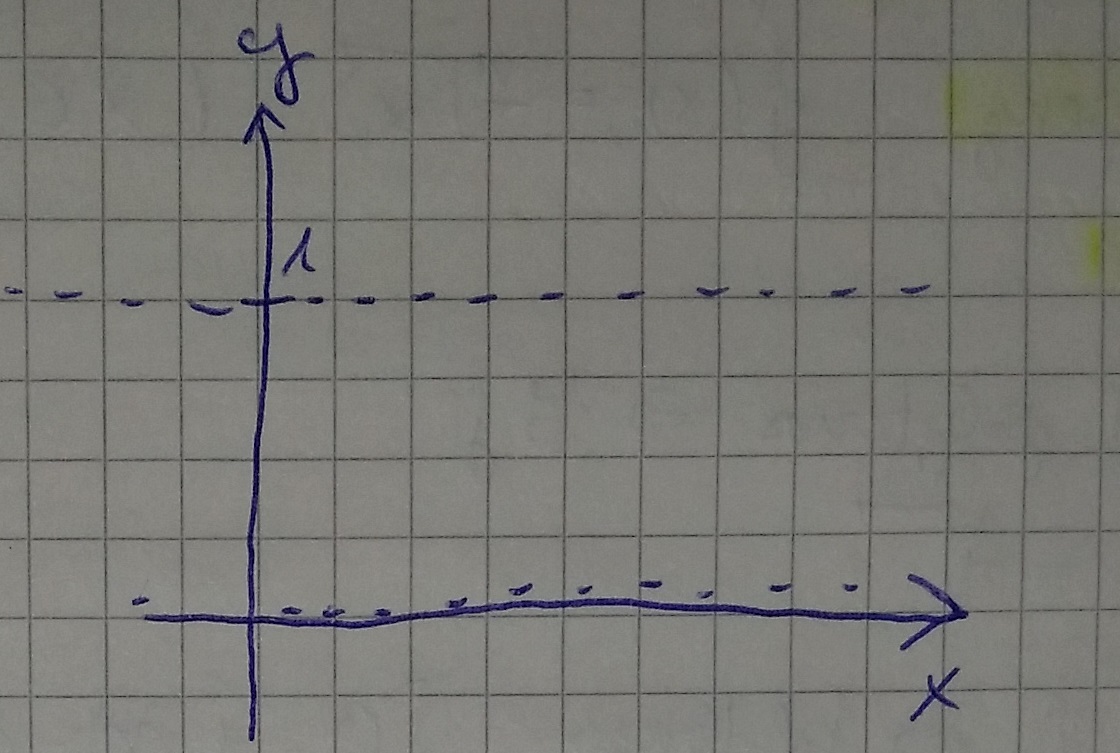 y
1
x